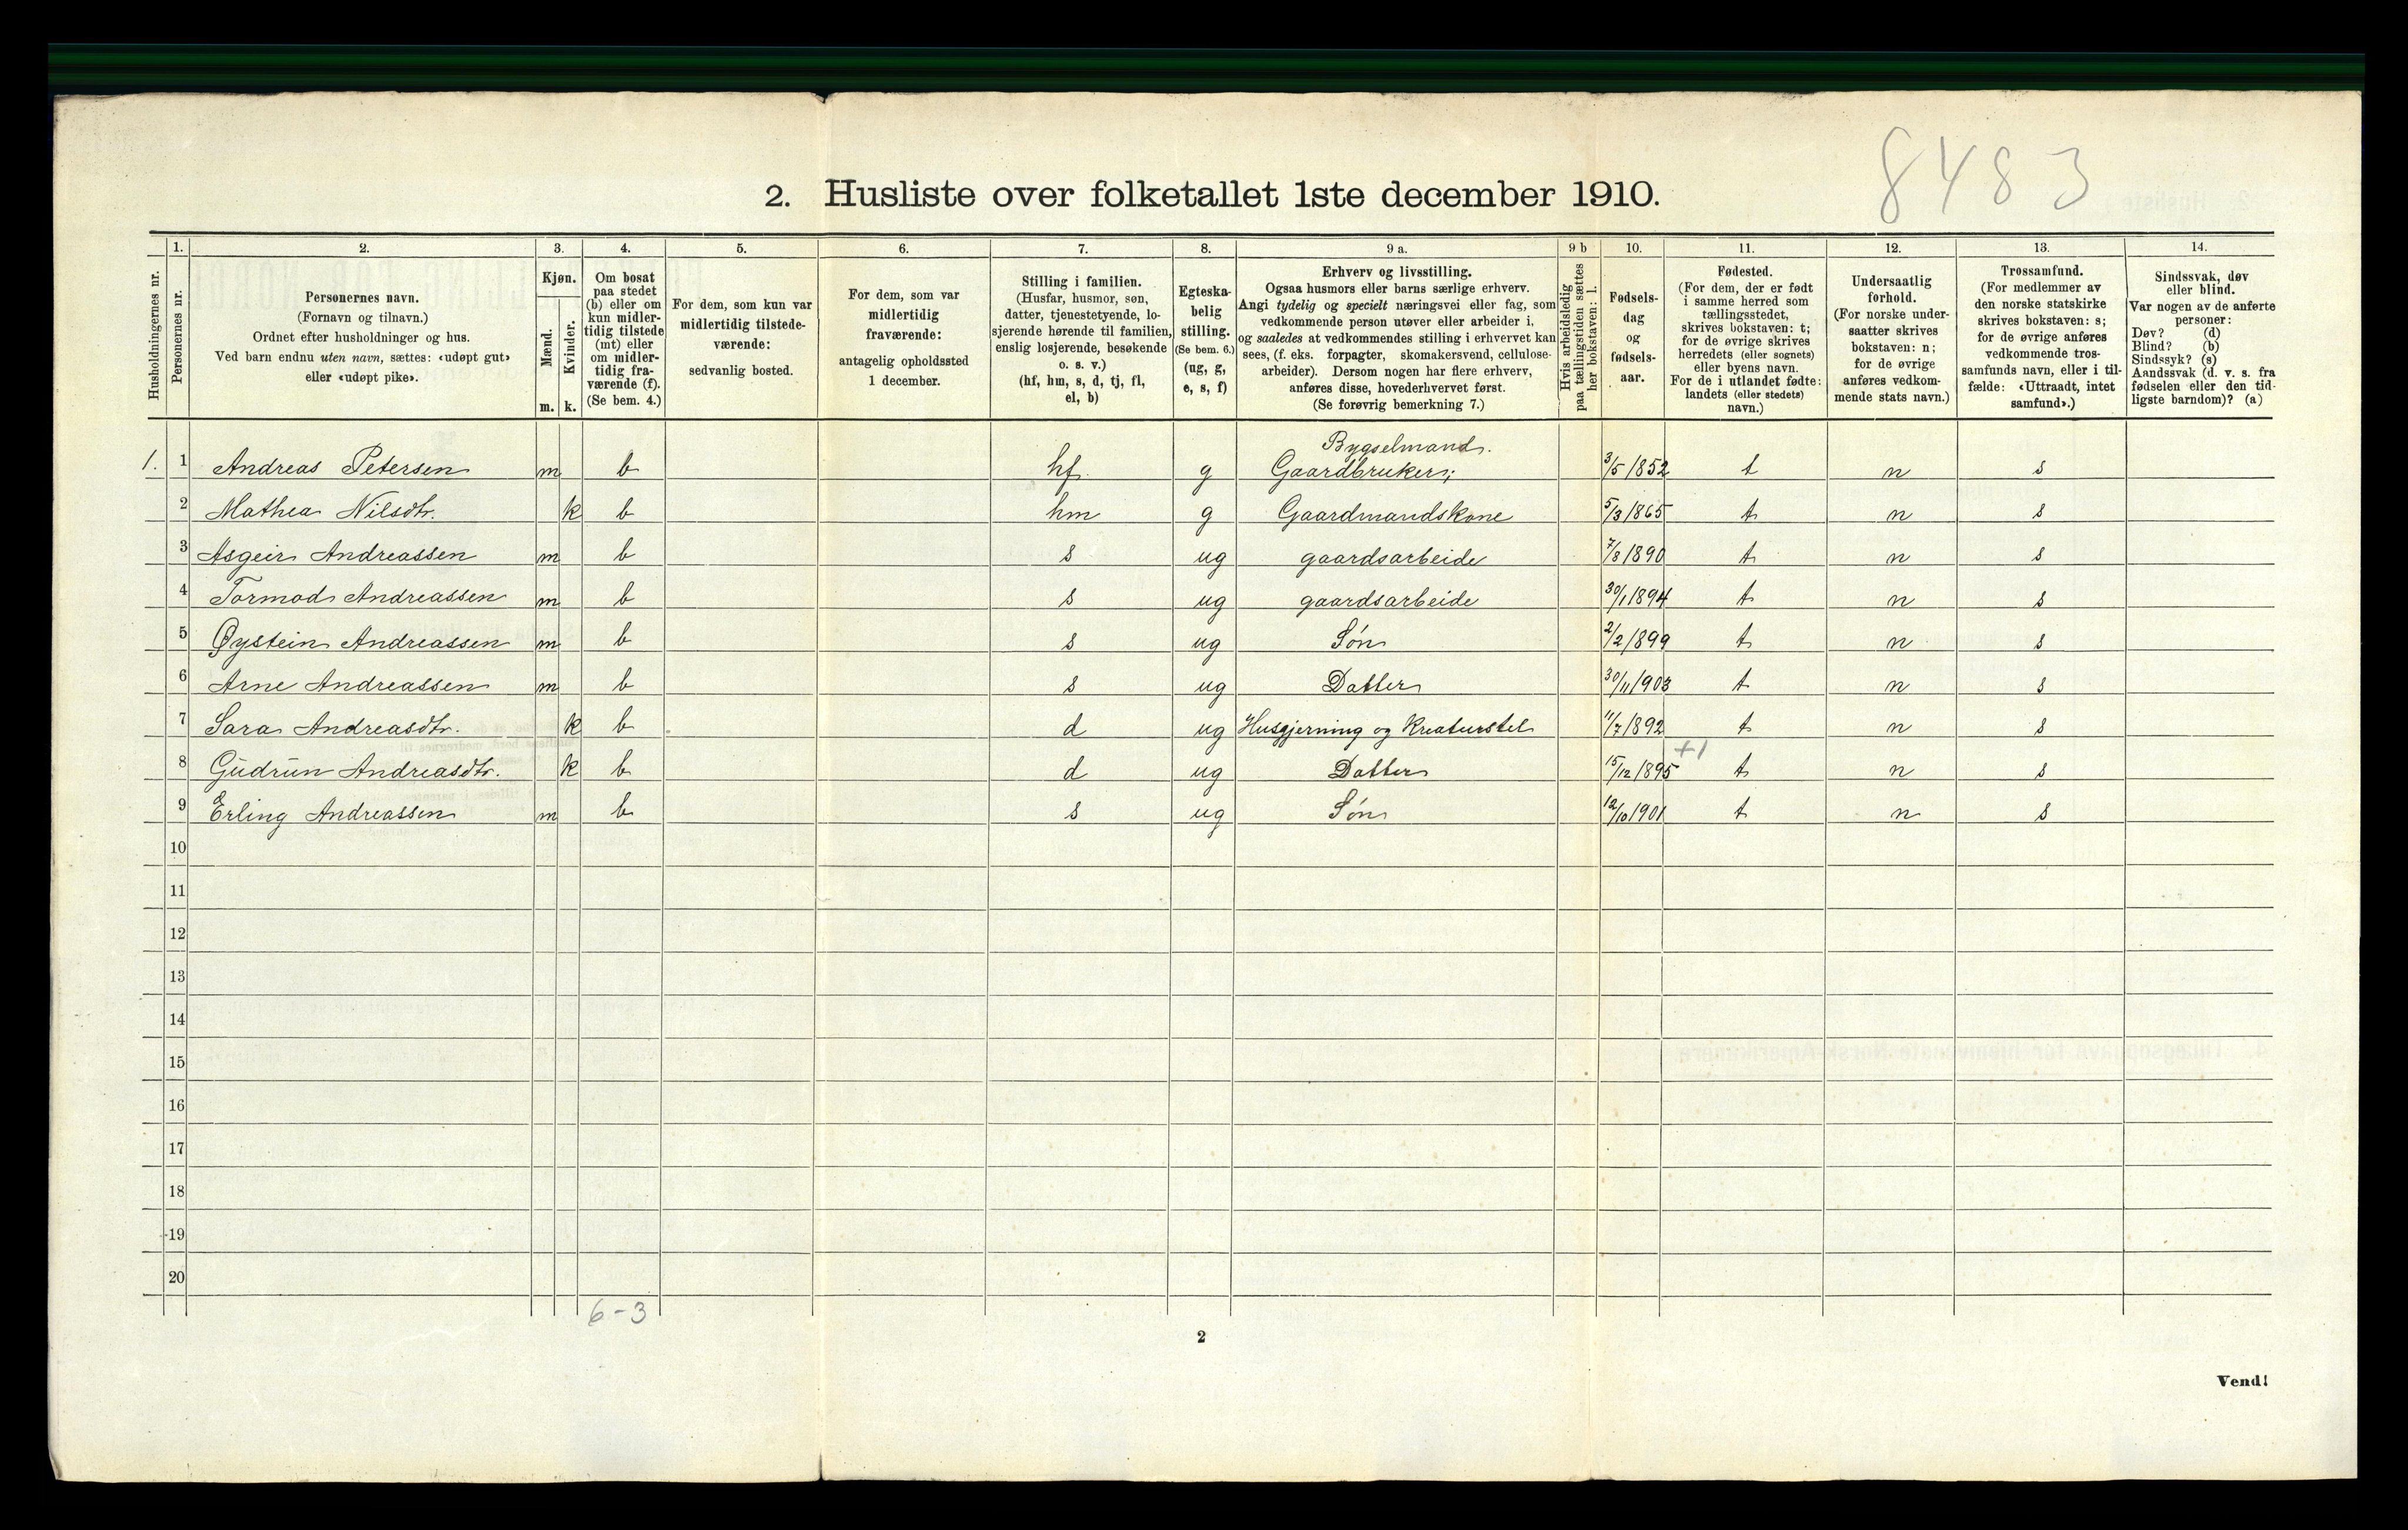 8483
2. Husliste over folketallet 1ste december 1910.
Husholdningernes nr.
1.
Personernes nr.
2.
Personernes navn.
(Fornavn og tilnavn.)
Ordnet efter husholdninger og hus.
Ved barn endnu uten navn, sættes: «udøpt gut»
eller «udøpt pike».
3.
Kjøn.
Mænd.
Kvinder.
m. k.
4.
Om bosat
paa stedet
(b) eller om
kun midler-
tidig tilstede
(mt) eller
om midler-
tidig fra-
værende (f).
(Se bem. 4.)
5.
For dem, som kun var
midlertidig tilstede-
værende:
sedvanlig bosted.
6.
For dem, som var
midlertidig
fraværende:
antagelig opholdssted
1 december.
7.
Stilling i familien.
(Husfar, husmor, søn,
datter, tjenestetyende, lo-
sjerende hørende til familien,
enslig losjerende, besøkende
o. s. v.)
(hf, hm, s, d, tj, fl,
el, b)
8.
Egteska-
belig
stilling.
(Se bem. 6.)
(ug, g,
e, s, f)
9 a.
Erhverv og livsstilling.
Ogsaa husmors eller barns særlige erhverv.
Angi tydelig og specielt næringsvei eller fag, som
vedkommende person utøver eller arbeider i,
og saaledes at vedkommendes stilling i erhvervet kan
sees, (f. eks. forpagter, skomakersvend, cellulose-
arbeider). Dersom nogen har flere erhverv,
anføres disse, hovederhvervet først.
(Se forøvrig bemerkning 7.)
9 b
Hvis arbeidsledig
paa tællingstiden sættes
her bokstaven: l.
10.
Fødsels-
dag
og
fødsels-
aar.
11.
Fødested.
(For dem, der er født
i samme herred som
tællingsstedet,
skrives bokstaven: t;
for de øvrige skrives
herredets (eller sognets)
eller byens navn.
For de i utlandet fødte:
landets (eller stedets)
navn.)
12.
Undersaatlig
forhold.
(For norske under-
saatter skrives
bokstaven: n;
for de øvrige
anføres vedkom-
mende stats navn.)
13.
Trossamfund.
(For medlemmer av
den norske statskirke
skrives bokstaven: s;
for de øvrige anføres
vedkommende tros-
samfunds navn, eller i til-
fælde: «Uttraadt, intet
samfund».)
14.
Sindssvak, døv
eller blind.
Var nogen av de anførte
personer:
Døv? (d)
Blind? (b)
Sindssyk? (s)
Aandssvak (d. v. s. fra
fødselen eller den tid-
ligste barndom)? (a)
Bygselmand.
1. 1 Andreas Petersen m b hf g Gaardbruker; 3/5 1852 t n s
2 Mathea Nilsdtr. k b hm g Gaardmandskone 5/3 1865 t n s
3 Asgeir Andreassen m b s ug gaardsarbeide 7/8 1890 t n s
4 Tormod Andreassen m b s ug gaardsarbeide 30/1 1894 t n s
5 Øystein Andreassen m b s ug Søn 2/2 1899 t n s
6 Arne Andreassen m b s ug Datter 30/11 1903 t n s
7 Sara Andreasdtr. k b d ug Husgjerning og Kreaturstel 11/7 1892 t n s
+1
8 Gudrun Andreasdtr. k b d ug Datter 15/12 1895 t n s
9 Erling Andreassen m b s ug Søn 12/10 1901 t n s
10
11
12
13
14
15
16
17
18
19
20
6-3
2
Vend!